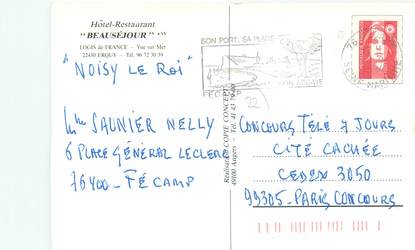 Hôtel-Restaurant
"BEAUSÉJOUR"
LOGIS de FRANCE - Vue sur Mer
22430 ERQUY - Tél. 96 72 30 39
"NOISY LE ROI"
Mme SAUNIER NELLY
6 PLACE GÉNÉRAL LECLERC
76400 - FÉCAMP
SON PORT, SA PLAGE
SON ABBAYE
FÉCAMP
22
76
SEINE-MARITIME
Réalisation COPIE CONCEPT
49000 Angers - Tél. 41 43
CONCOURS TÉLÉ 7 JOURS
CITÉ CACHÉE
CEDEX 3050
99305 - PARIS CONCOURS